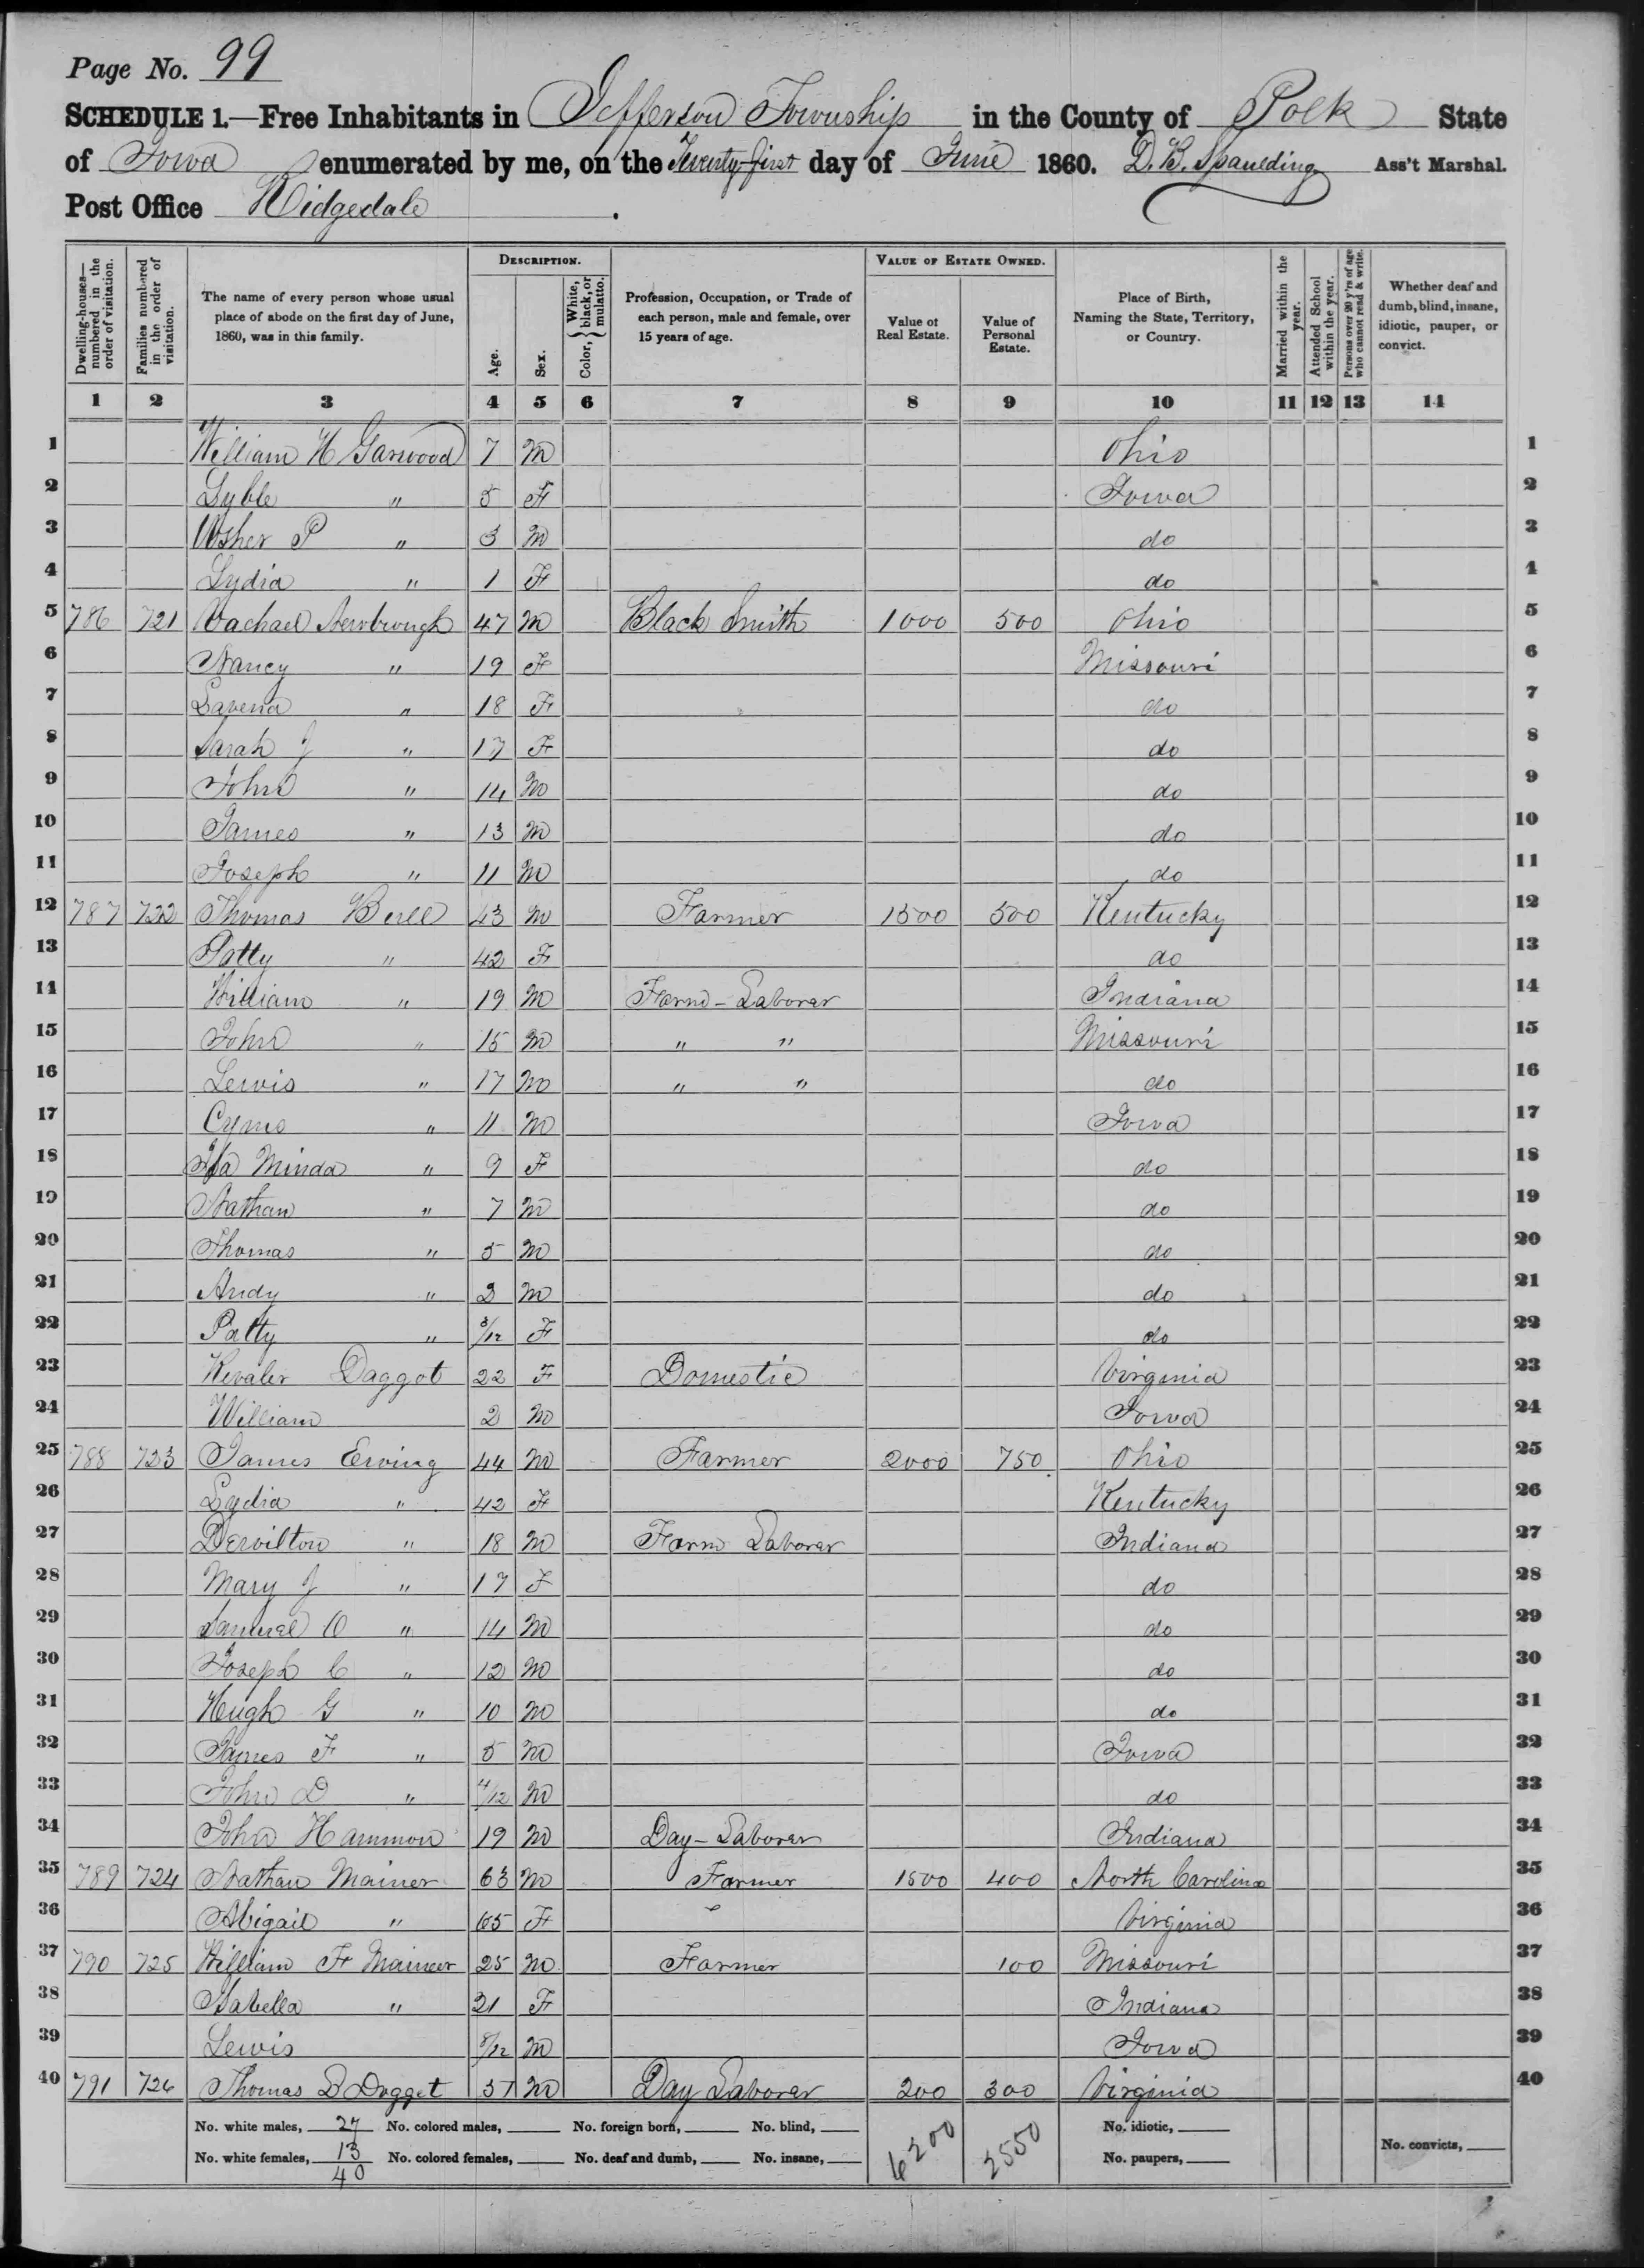 Page No. 99
SCHEDULE 1.—Free Inhabitants in Jefferson Township in the County of Polk State
of Iowa enumerated by me, on the Twenty-first day of June 1860. D. B. Spaulding Ass't Marshal.
Post Office Ridgedale.
DESCRIPTION. VALUE OF ESTATE OWNED.
Dwelling-houses—numbered in the order of visitation. Families numbered in the order of visitation. The name of every person whose usual place of abode on the first day of June, 1860, was in this family. Age. Sex. Color, { White, black, or mulatto. Profession, Occupation, or Trade of each person, male and female, over 15 years of age. Value of Real Estate. Value of Personal Estate. Place of Birth, Naming the State, Territory, or Country. Married within the year. Attended School within the year. Persons over 20 y'rs of age who cannot read & write. Whether deaf and dumb, blind, insane, idiotic, pauper, or convict.
1 2 3 4 5 6 7 8 9 10 11 12 13 14
1 William H Garwood 7 M Ohio 1
2 Syble " 5 F Iowa 2
3 Usher P " 3 M do 3
4 Lydia " 1 F do 4
5 786 721 Vachael 47 M Black Smith 1000 500 Ohio 5
6 Nancy " 19 F Missouri 6
7 Lavena " 18 F do 7
8 Sarah J " 17 F do 8
9 John " 14 M do 9
10 James " 13 M do 10
11 Joseph " 11 M do 11
12 787 722 Thomas Bell 43 M Farmer 1500 500 Kentucky 12
13 Patty " 42 F do 13
14 William " 19 M Farm-Laborer Indiana 14
15 John " 15 M " " Missouri 15
16 Lewis " 17 M " " do 16
17 Cyrus " 11 M Iowa 17
18 Minda " 9 F do 18
19 Nathan " 7 M do 19
20 Thomas " 5 M do 20
21 Andy " 2 M do 21
22 Patty " 3/12 F do 22
23 Daggot 22 F Domestic Virginia 23
24 William 2 M Iowa 24
25 788 723 James Erving 44 M Farmer 2000 750 Ohio 25
26 Lydia " 42 F Kentucky 26
27 Dervilton " 18 M Farm Laborer Indiana 27
28 Mary J " 17 F do 28
29 Samuel O " 14 M do 29
30 Joseph C " 12 M do 30
31 Hugh G " 10 M do 31
32 James F " 5 M Iowa 32
33 John D " 4/12 M do 33
34 John Hammon 19 M Day-Laborer Indiana 34
35 789 724 Nathan Mainer 63 M Farmer 1500 400 North Carolina 35
36 Abigail " 65 F Virginia 36
37 790 725 William F Mainer 25 M Farmer 100 Missouri 37
38 Isabella " 21 F Indiana 38
39 Lewis 8/12 M Iowa 39
40 791 726 Thomas D Dogget 37 M Day Laborer 200 300 Virginia 40
No. white males, 27 No. colored males, No. foreign born, No. blind, 6200 2550 No. idiotic,
No. white females, 13 No. colored females, No. deaf and dumb, No. insane, No. paupers, No. convicts,
40